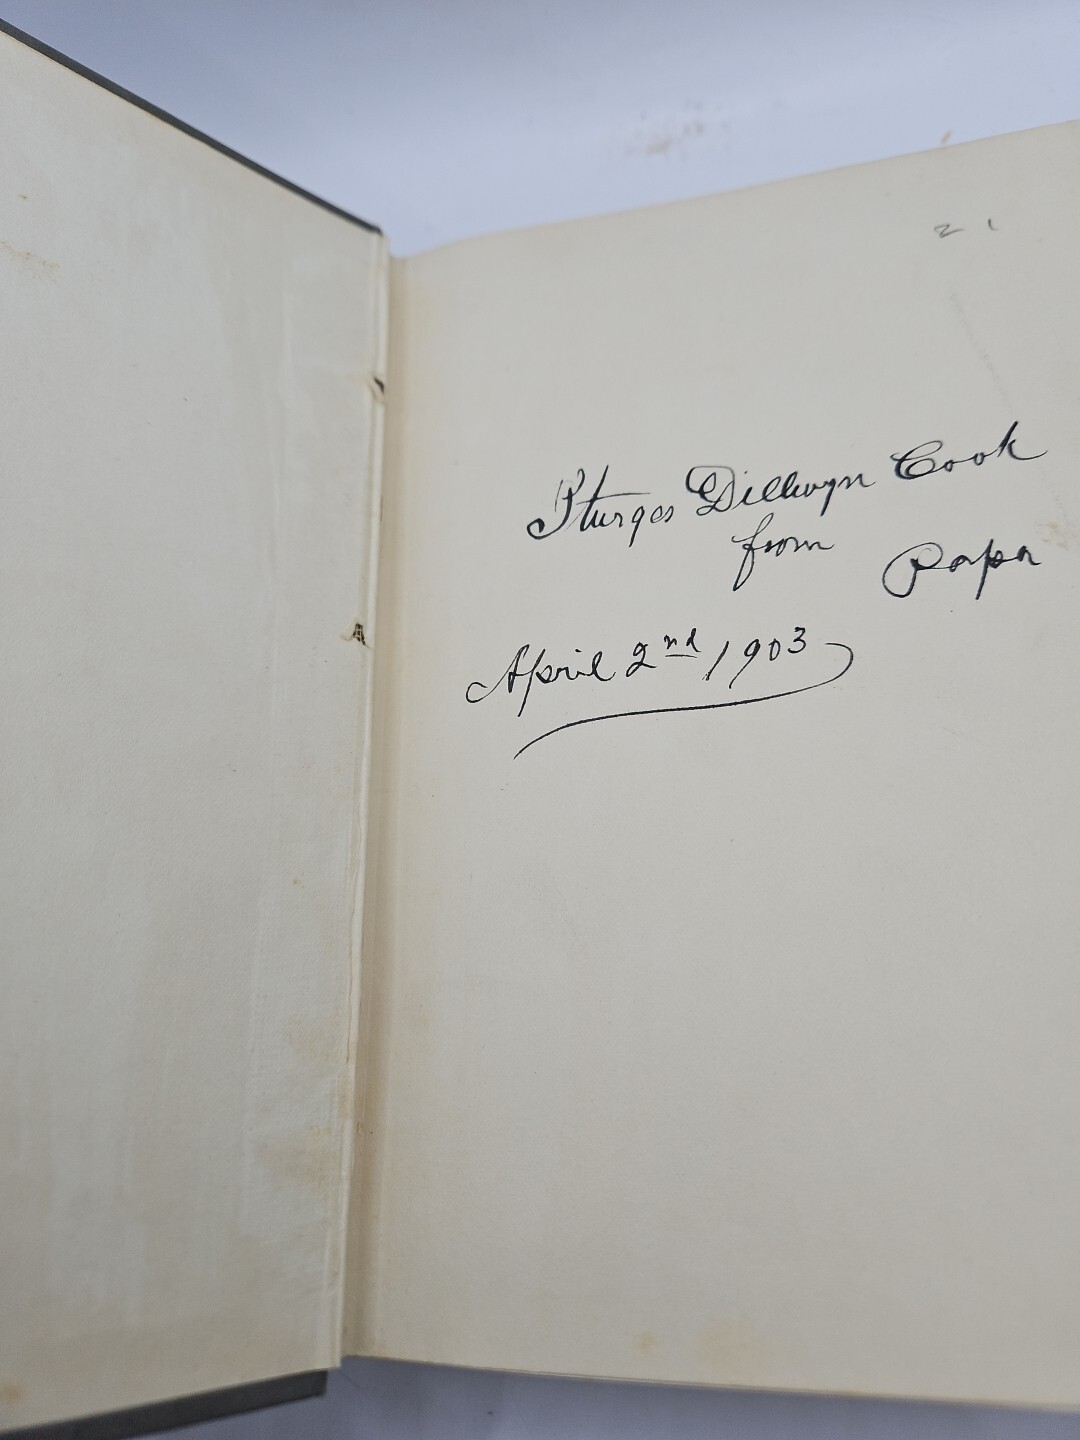 21
Sturges Dillwyn Cook
from Papa
April 2nd 1903